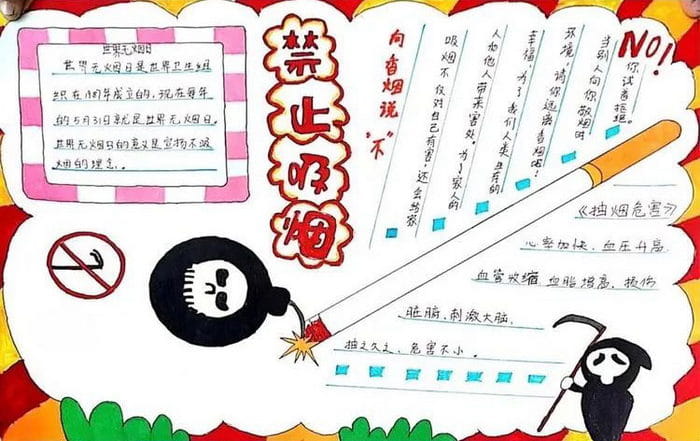 世界无烟日
世界无烟日是世界卫生组
织在1987年成立的，现在每年
的5月31日就是世界无烟日。
世界无烟日的意义是宣扬不吸
烟的理念。
禁止吸烟
向香烟说"不"
NO!
当别人向你敬烟时
你试着拒绝。
环境，请你远离香烟吧！
幸福，为了我们人类生存的
人和他人带来害处。为了家人的
吸烟不仅对自己有害，还会给家
《抽烟危害》
心率加快、血压升高
血管收缩 血脂增高、损伤
脏腑、刺激大脑、
抽之久之、危害不小。